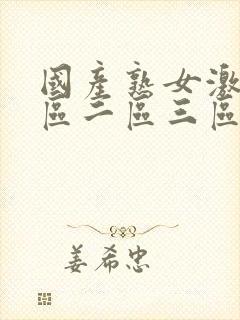 國產熟女激
區二區三區
姜希忠